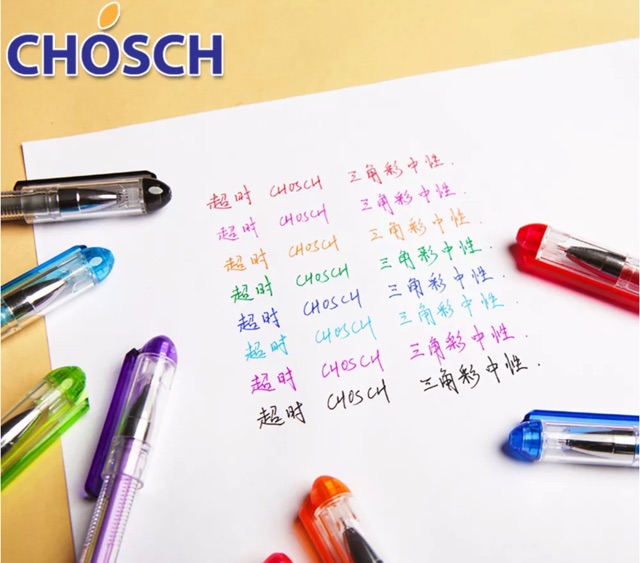 CHOSCH
超时 CHOSCH 三角彩中性.
超时 CHOSCH 三角彩中性.
超时 CHOSCH 三角彩中性.
超时 CHOSCH 三角彩中性.
超时 CHOSCH 三角彩中性.
超时 CHOSCH 三角彩中性.
超时 CHOSCH 三角彩中性.
超时 CHOSCH 三角彩中性.